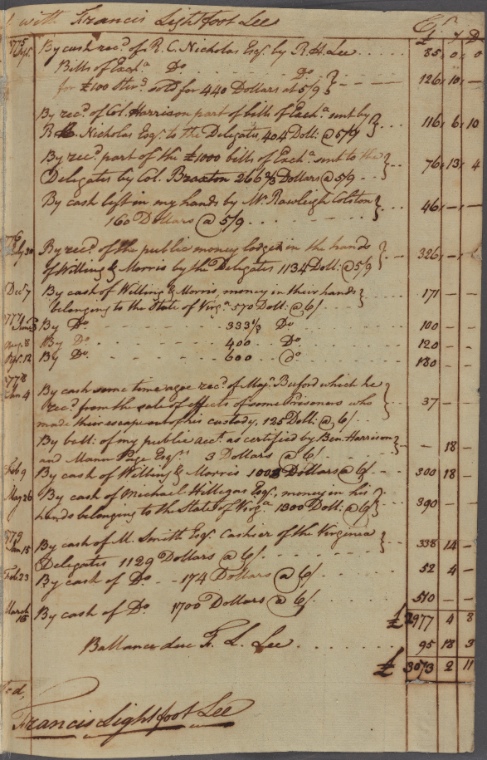 with Francis Lightfoot Lee
£ D
1775
By cash rec.d of R. C. Nicholas Esq.r by R. H. Lee 85 0 0
Bills of Exch.a D.o D.o
for £100 Ster.g sold for 440 Dollars at 5/9 126 10
By rec.d of Col. Harrison part of bill of Exch.a sent by
R. C. Nicholas Esq.r to the Delegates, 404 Doll: @ 5/9 116 6 10
By rec.d part of the £1000 bills of Exch.a sent to the
Delegates by Col. Braxton 266 2/3 Dollars @ 5/9 76 13 4
By cash left in my hands by Mr. Rawleigh Colston
160 Dollars @ 5/9 46
July 20 By rec.d of the public money lodged in the hands
of Willing & Morris by the Delegates 1134 Doll: @ 5/9 326
Dec 7 By cash of Willing & Morris, money in their hands
belonging to the State of Virg.a 570 Doll: @ 6/ 171
1777
By D.o 333 1/3 D.o 100
Aug. 8 By D.o 400 D.o 120
12 By D.o 600 D.o 180
1778
Jan 4 By cash some time agoe rec.d of Maj.r Buford which he
rec.d from the sale of effects of some Prisoners who
made their escape out of his custody, 125 Doll: @ 6/ 37
By ball: of my public acc.t as certified by Ben. Harrison
and Mann Page Esq.rs 3 Dollars @ 6/ 18
Feb 9 By cash of Willing & Morris 1003 Dollars @ 6/ 300 18
May 26 By cash of Michael Hillegas Esq.r, money in his
hands belonging to the State of Virg.a 1300 Doll: @ 6/ 390
1779
Jan 15 By cash of M. Smith Esq.r Cashier of the Virginia
Delegates 1129 Dollars @ 6/ 338 14
Feb 23 By cash of D.o 174 Dollars @ 6/ 52 4
March
15 By cash of D.o 1700 Dollars @ 6/ 510
£ 2977 4 8
Ballance due F. L. Lee 95 18 3
£ 3073 2 11
Francis Lightfoot Lee